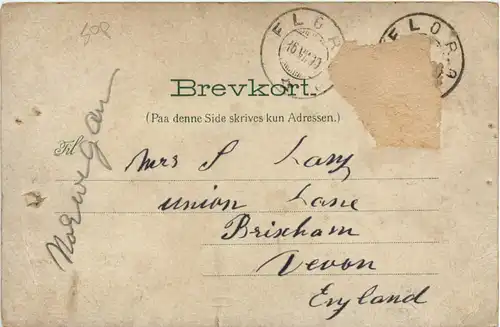 50p
FLORØ
16 VII 00
FLORØ
Brevkort.
(Paa denne Side skrives kun Adressen.)
Til
Mrs S Lang
Union Lane
Brixham
Devon
England
Norwegan